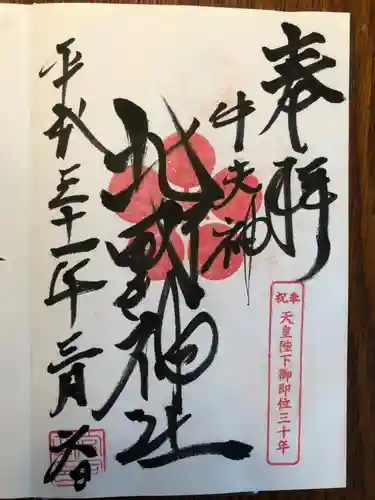 奉拝
牛天神
北野神社
平成三十一年三月六日
奉祝 天皇陛下御即位三十年